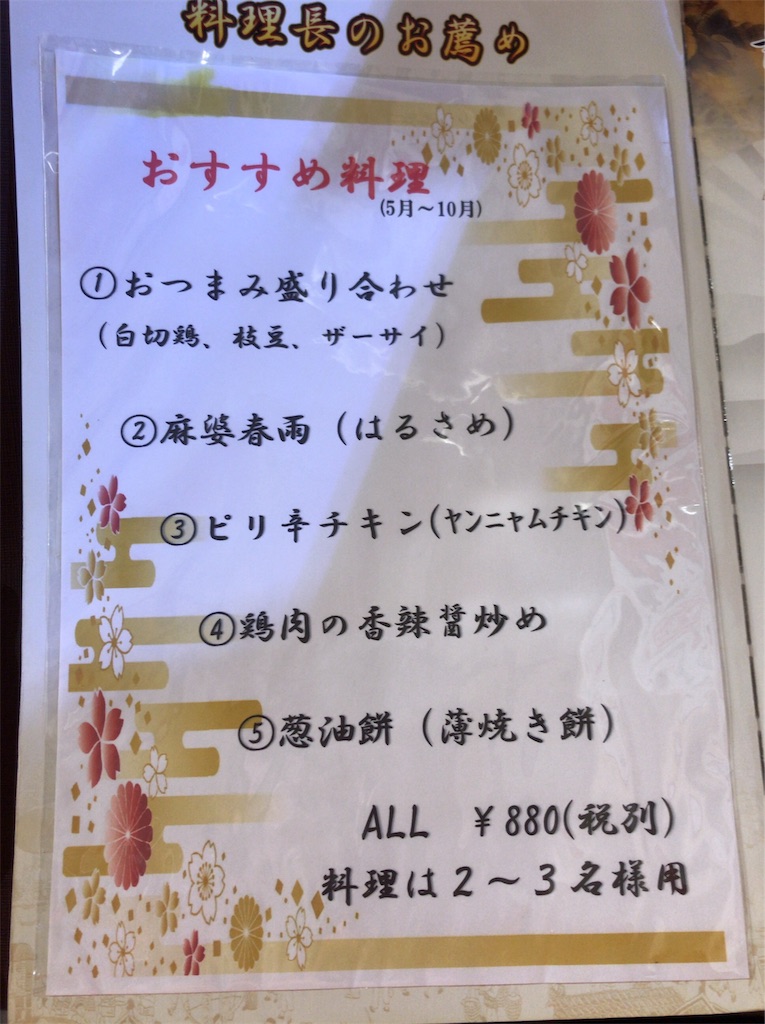 料理長のお薦め
おすすめ料理
(5月～10月)
①おつまみ盛り合わせ
（白切鶏、枝豆、ザーサイ）
②麻婆春雨（はるさめ）
③ピリ辛チキン(ヤンニャムチキン)
④鶏肉の香辣醤炒め
⑤葱油餅（薄焼き餅）
ALL ￥880(税別)
料理は２～３名様用